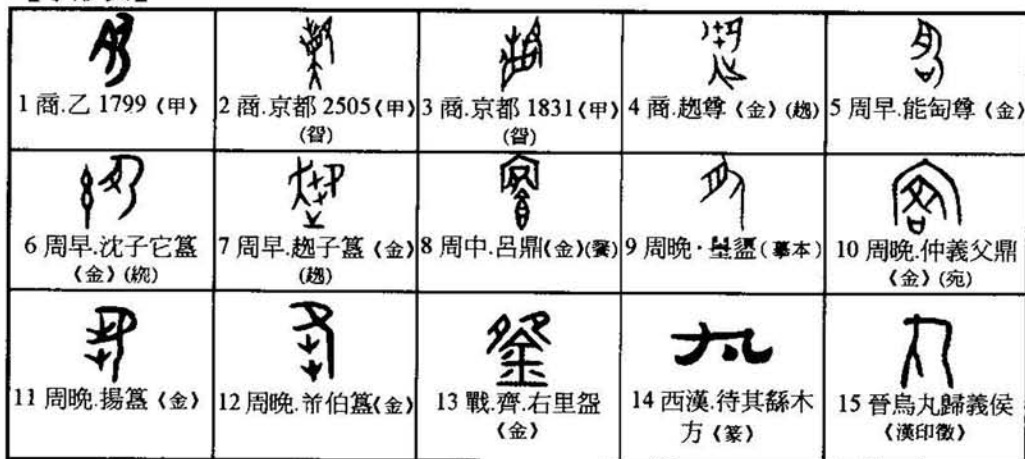 1 商.乙 1799《甲》
2 商.京都 2505《甲》
(曫)
3 商.京都 1831《甲》
4 商.趩尊《金》
5 周早.能匋尊《金》
6 周早.沈子它簋
《金》
7 周早.趩子簋《金》
8 周中.呂鼎《金》
9 周晚.盨(摹本)
10 周晚.仲義父鼎
《金》(宛)
11 周晚.揚簋《金》
12 周晚.伯簋《金》
13 戰.齊.右里盌
《金》
14 西漢.待其繇木
方《篆》
15 晉烏丸歸義侯
《漢印徵》